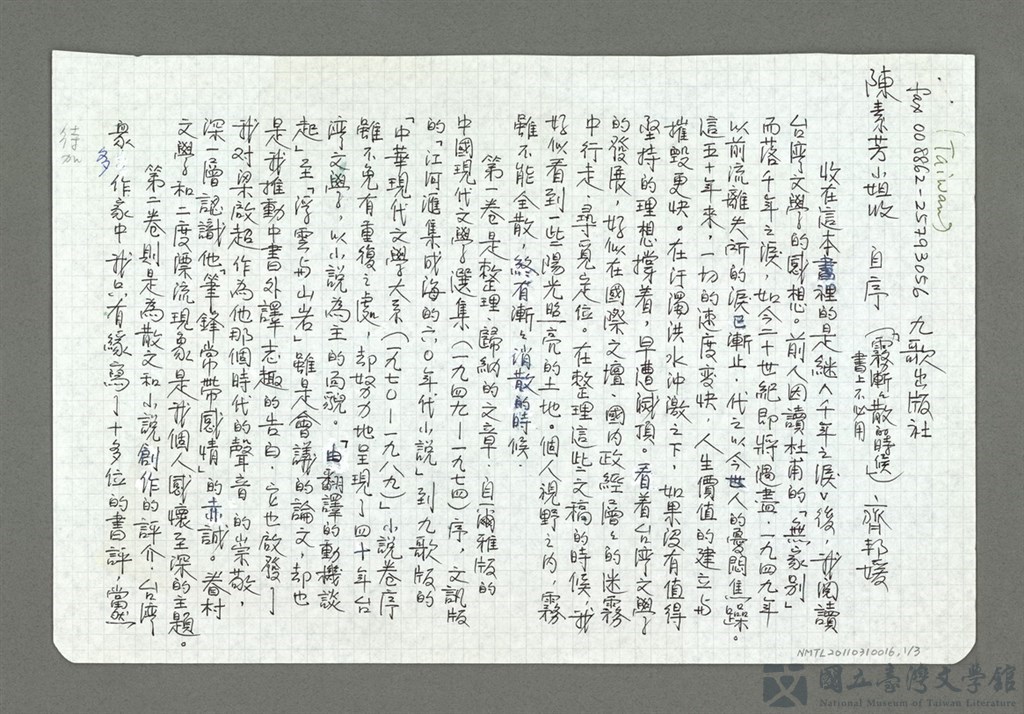 (Taiwan)
fax 008862-25793056 九歌出版社
陳素芳小姐收 自序(「霧漸漸散的時候」) 齊邦媛
書上不必用
收在這本書裡的是繼《千年之淚》後,我閱讀
台灣文學的感想。前人因讀杜甫的「無家別」
而落千年之淚,如今二十世紀即將過盡,一九四九年
以前流離失所的淚已漸止,代之以今世人的憂悶焦躁。
這五十年來,一切的速度變快,人生價值的建立與
摧毀更快。在汙濁洪水沖激之下,如果沒有值得
堅持的理想撐着,早遭滅頂。看着台灣文學
的發展,好似在國際文壇、國內政經層層的迷霧
中行走,尋覓定位。在整理這些文稿的時候,我
好似看到一些陽光照亮的土地。個人視野之內,霧
雖不能全散,終有漸漸消散的時候.
第一卷是整理、歸納的文章.自爾雅版的
中國現代文學選集(一九四九—一九七四)序,文訊版
的「江河滙集成海的六〇年代小說」到九歌版的
「中華現代文學大系(一九七〇—一九八九)」小說卷序
雖不免有重復之處,却努力地呈現了四十年台
灣文學,以小說為主的面貌。「由翻譯的動機談
起」至「浮雲與山岩」雖是會議的論文,却也
是我推動中書外譯志趣的告白.它也啟發了
我對梁啟超作為他那個時代的聲音的崇敬,
深一層認識他「筆鋒常帶感情」的赤誠。眷村
文學和二度漂流現象是我個人感懷至深的主題。
第二卷則是為散文和小說創作的評介.台灣
衆多作家中我只有緣寫了十多位的書評,黨
待加
NMTL20110310016,1/3
國立臺灣文學館
National Museum of Taiwan Literature